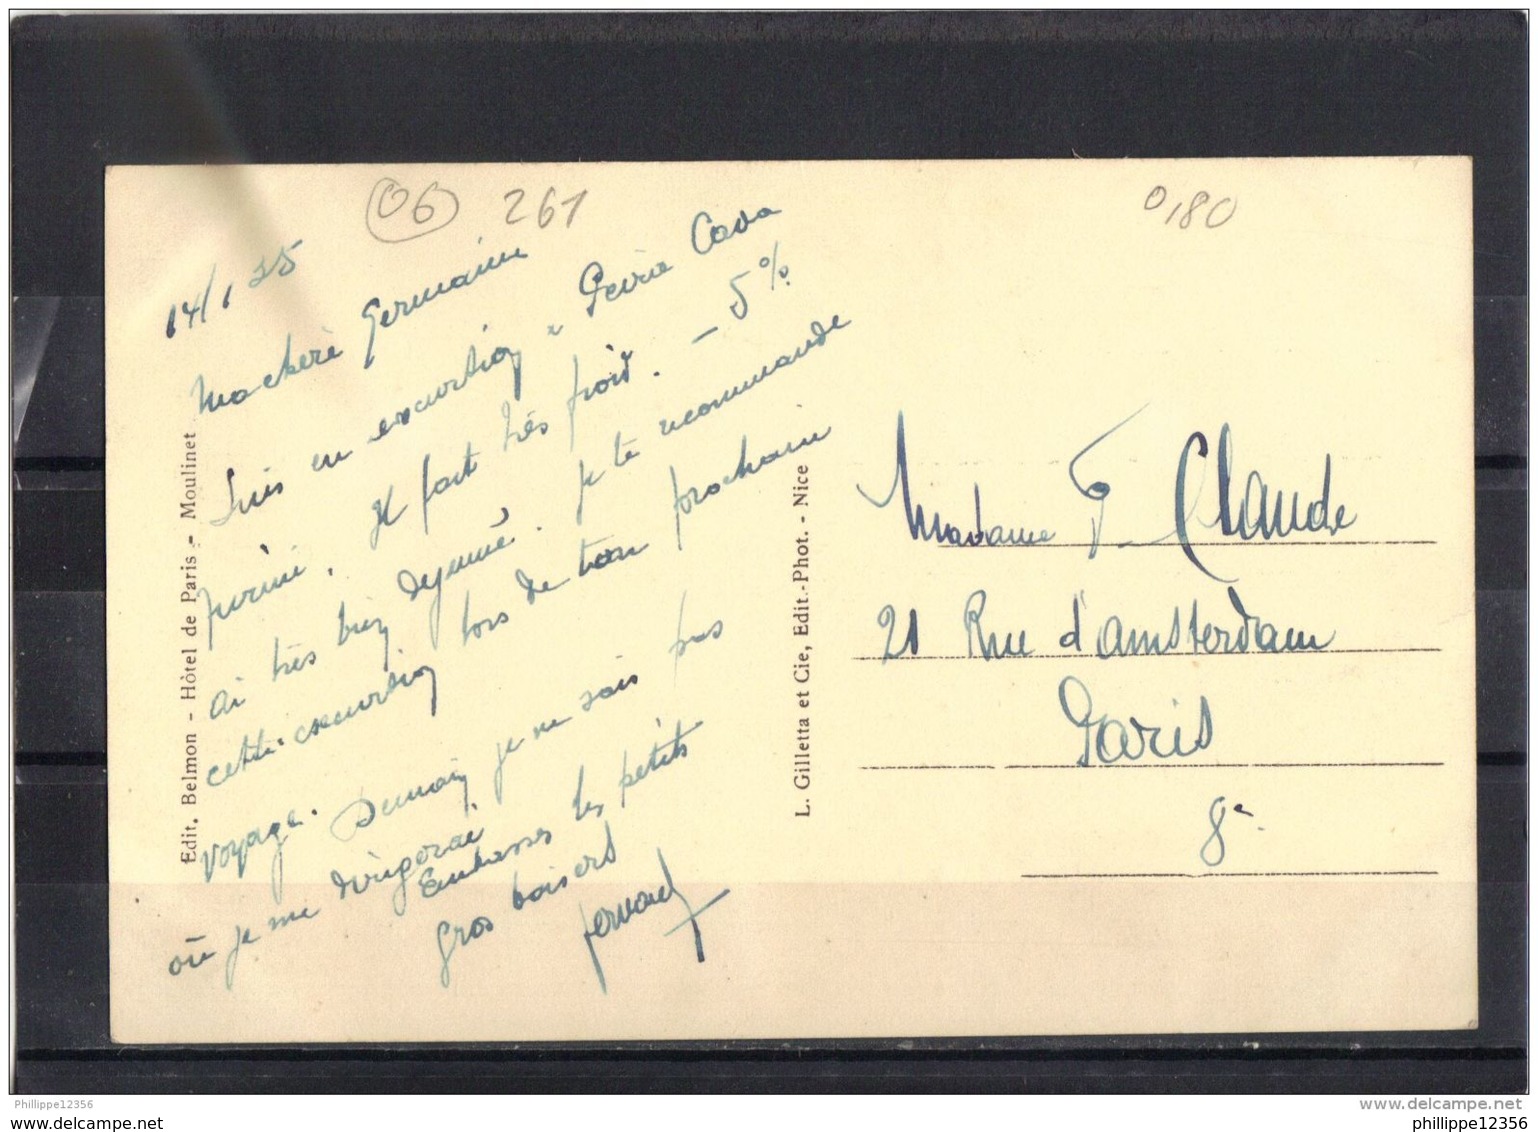 06 261
0,80
14/1 35
Ma chère Germaine
Suis en excursion "Peïra Cava
puriné. Il fait très froid. - 5%
ai très bien dejeuné. Je te recommande
cette excursion lors de ton prochain
voyage. Demain je ne sais pas
où je me dirigerai.
Embrasses les petits
Gros baisers
fernand
Edit. Belmon - Hôtel de Paris - Moulinet
L. Gilletta et Cie, Edit.-Phot. - Nice
Madame P. Claude
21 Rue d'amsterdam
Paris
8e
Philippe12356
www.delcampe.net
www.delcampe.net
philippe12356